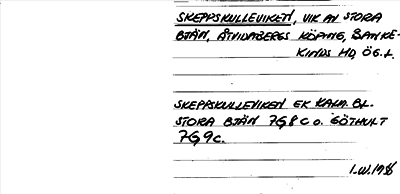 SKEPPSKULLEVIKEN, VIK AV STORA
BJÄN, ÅTVIDABERGS KÖPING, BANKE-
KINDS HD, ÖG. L.
SKEPPSKULLEVIKEN EK KALM. BL.
STORA BJÄN 7G 8 C O. GÖTHULT
7G 9c.
I.W. 1956